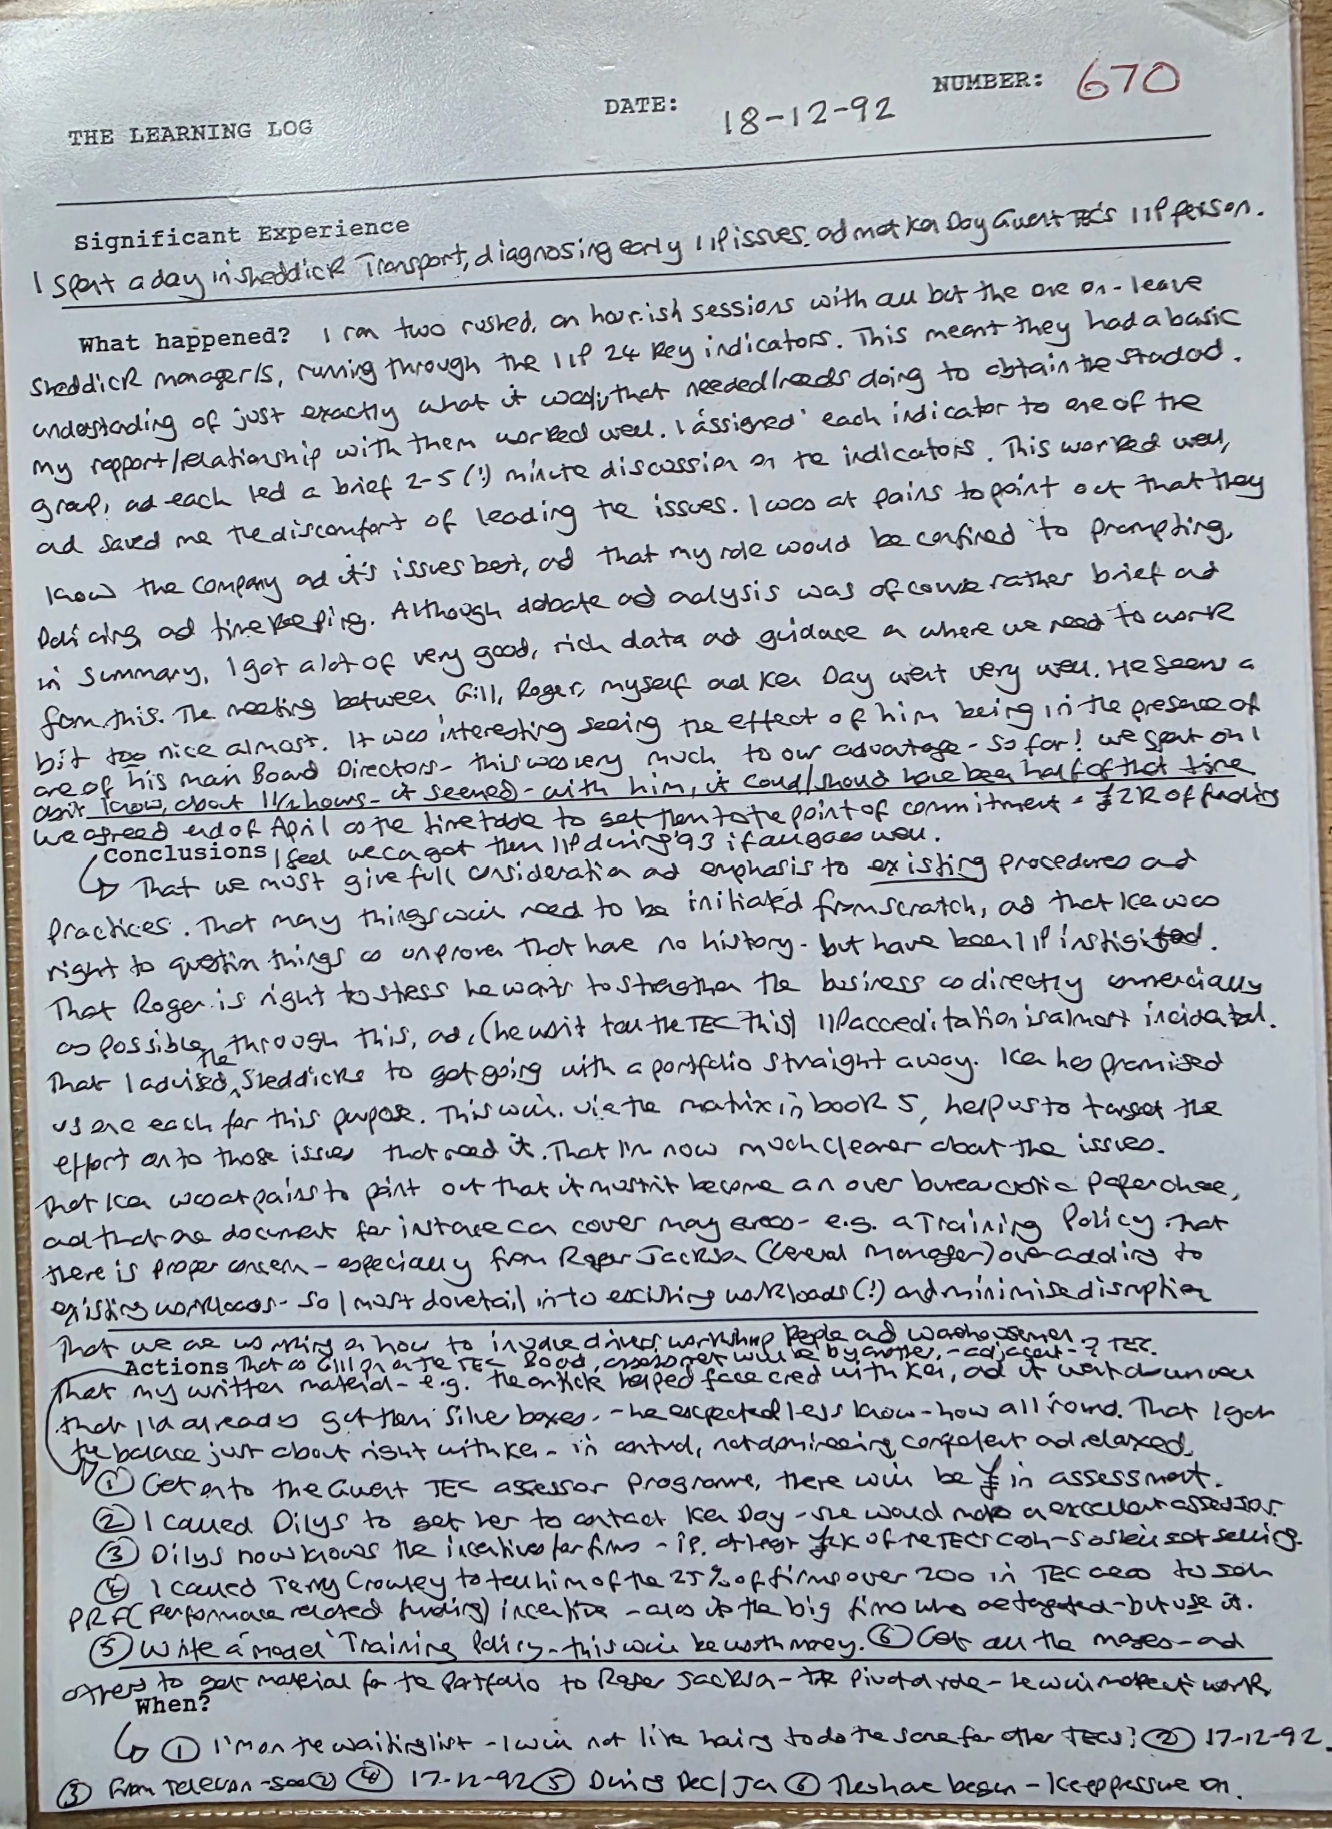 THE LEARNING LOG
DATE: 18-12-92
NUMBER: 670
Significant Experience
I spent a day in Sheddick Transport, diagnosing early IIP issues, ad met Ken Day Gwent TEC's IIP person.
What happened? I ran two rushed, an hour-ish sessions with all but the one on-leave
Sheddick manager/s, running through the IIP 24 Key indicators. This meant they had a basic
understanding of just exactly what it was/is that needed/needs doing to obtain the standard.
My rapport/relationship with them worked well. I 'assigned' each indicator to one of the
group, ad each led a brief 2-5 (!) minute discussion on the indicators. This worked well,
ad saved me the discomfort of leading the issues. I was at pains to point out that they
know the company ad it's issues best, ad that my role would be confined to prompting,
policing, ad timekeeping. Although debate ad analysis was of course rather brief ad
in summary, I got a lot of very good, rich data ad guidance on where we need to work
from this. The meeting between Gill, Roger, myself ad Ken Day went very well. He seems a
bit too nice almost. It was interesting seeing the effect of him being in the presence of
one of his main Board Directors - this was very much to our advantage - so far! We spent oh I
don't know, about 1 1/2 hours - it seemed - with him, it could/should have been half of that time
we agreed end of April as the timetable to get them to the point of commitment = £2K of funding
Conclusions I feel we can get them IIP during '93 if all goes well.
That we must give full consideration ad emphasis to existing procedures ad
practices. That many things will need to be initiated from scratch, ad that Ken was
right to question things as unproven that have no history - but have been IIP instigated.
That Roger is right to stress he wants to strengthen the business as directly commercially
as possible through this, ad, (he won't tell the TEC this) IIP accreditation is almost incidental.
That I advised the Sheddicks to get going with a portfolio straight away. Ken has promised
us one each for this purpose. This will, via the matrix in book 5, help us to target the
effort on to those issues that need it. That I'm now much clearer about the issues.
That Ken was at pains to point out that it mustn't become an over bureaucratic paperchase,
ad that one document for instance can cover many areas - e.g. a Training Policy. That
there is proper concern - especially from Roger Jackson (General Manager) over adding to
existing workloads - so I must dovetail into existing workloads (!) and minimise disruption
That we are working on how to involve drivers, workshop people ad warehousemen.
Actions That as Gill on the TEC Board, assessment will be by another, - adjacent - ? TEC.
That my written material - e.g. the article helped face cred with Ken, ad it went down well
that I'd already got them 'Silver boxes. - he expected less know-how all round. That I got
the balance just about right with Ken - in control, not domineering, competent ad relaxed.
① Get onto the Gwent TEC assessor programme, there will be £ in assessment.
② I called Dilys to get her to contact Ken Day - she would make an excellent assessor.
③ Dilys now knows the incentives for firms - i.e. at least £2K of the TEC's cash - so she's
④ I called Terry Crowley to tell him of the 25% of firms over 200 in TEC areas to
PRF (performance related funding) incentive - also it's the big firms who are targeted - but use it.
⑤ Write a 'model' Training Policy - this will be worth money. ⑥ Get all the - ad
others to get material for the Portfolio to Roger Jackson - the pivotal role - he will make it work
When?
① I'm on the waiting list - I will not like having to do the same for other TECs! ② 17-12-92.
③ From Telecon - see ② ④ 17-12-92 ⑤ During Dec/Jan ⑥ They have begun - Keep pressure on.